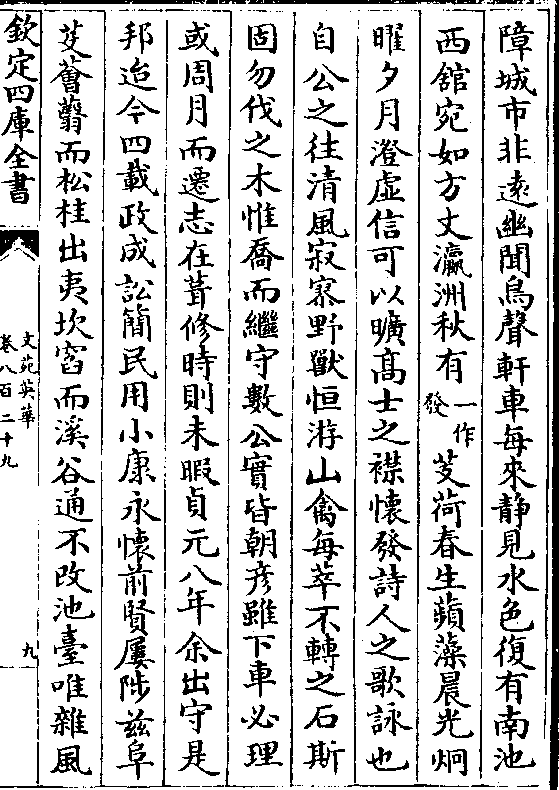 障城市非遠幽聞鳥聲軒車每來靜見水色復有南池
西舘宛如方丈瀛洲秋有一作發芰荷春生蘋藻晨光炯
曜夕月澄虛信可以曠高士之襟懷發詩人之歌詠也
自公之往清風寂寥野獸恒游山禽每萃不轉之石斯
固勿伐之木惟喬而繼守數公實皆朝彦雖下車必理
或周月而遷志在葺修時則未暇貞元八年余出守是
邦迨今四載政成訟簡民用小康永懷前賢屢陟兹阜
芟薈蘙而松桂出夷坎窞而溪谷通不改池臺唯雜風
欽定四庫全書
文苑英華
卷八百二十九
九